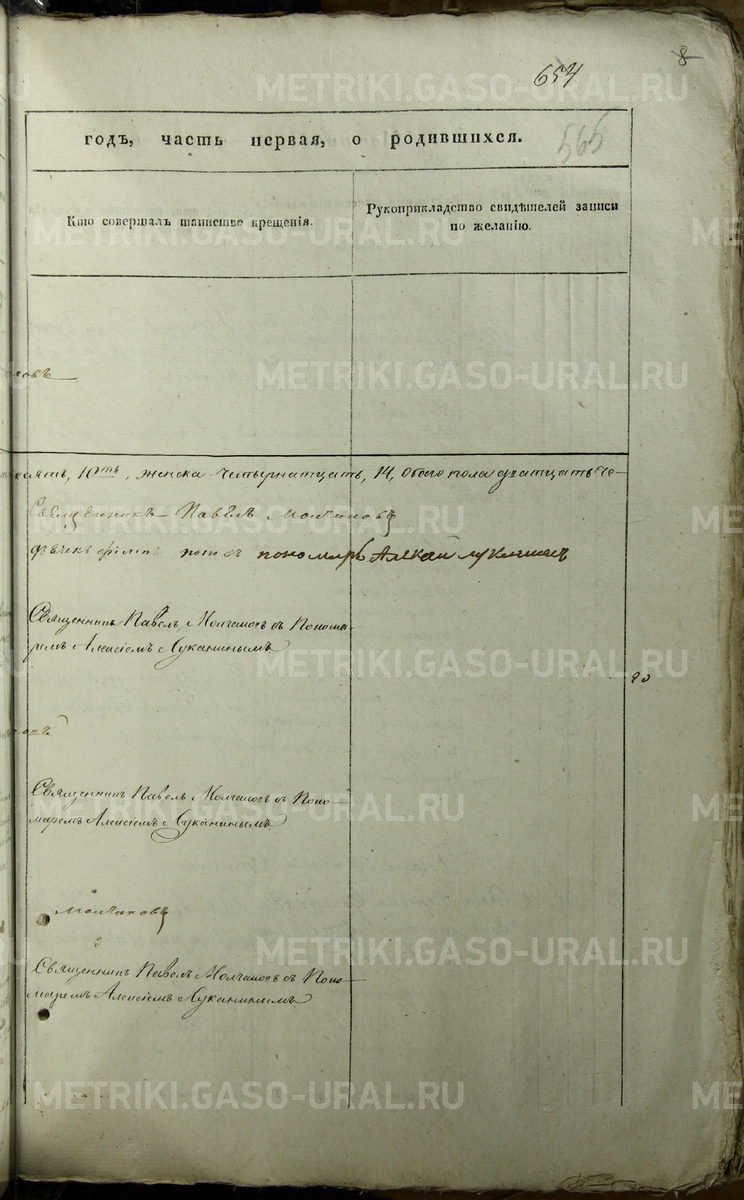 8
654
565
годъ, часть первая, о родившихся.
Кто совершалъ таинство крещенія.
Рукоприкладство свидѣтелей записи
по желанію.
овъ
10ть, женска четырнатцать, 14, обоего пола дватцать че-
Священникъ Павелъ Молчановъ
пономарь
Священникъ Павелъ Молчановъ съ Понома-
ремъ Алексіемъ Луканинымъ
90
Священникъ Павелъ Молчановъ съ Поно-
маремъ Алексіемъ Луканинымъ
Молчановъ
Священникъ Павелъ Молчановъ съ Поно-
маремъ Алексіемъ Луканинымъ
METRIKI.GASO-URAL.RU